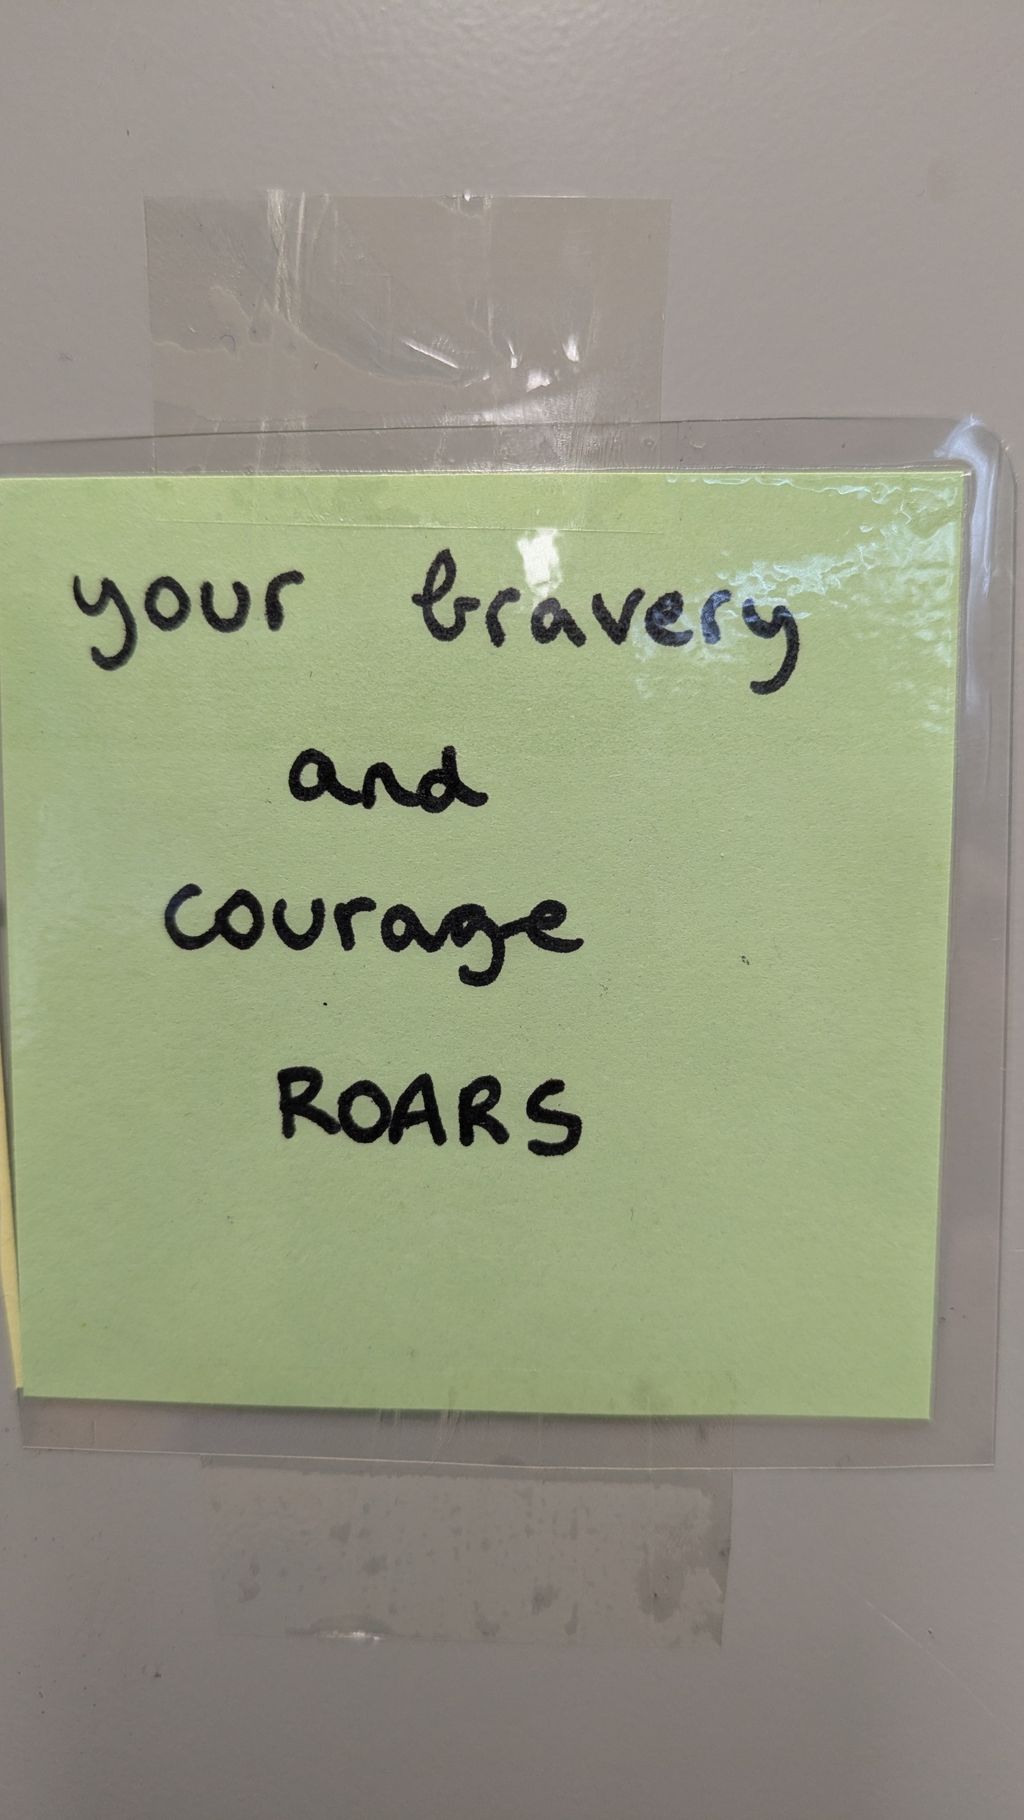 your bravery
and
courage
ROARS